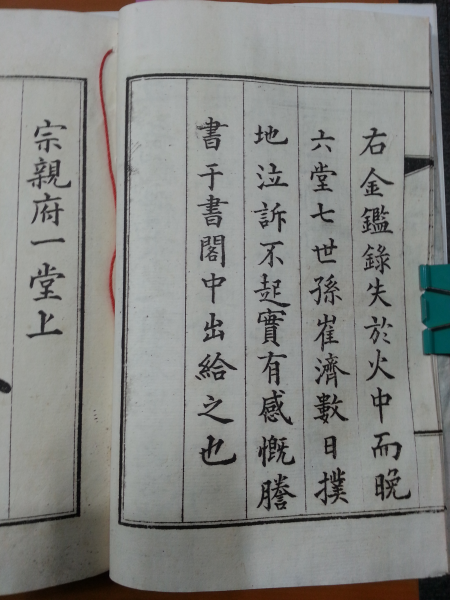 右金鑑錄失於火中而晩
六堂七世孫崔濟數日撲
地泣訴不起實有感慨謄
書于書閣中出給之也
宗親府一堂上